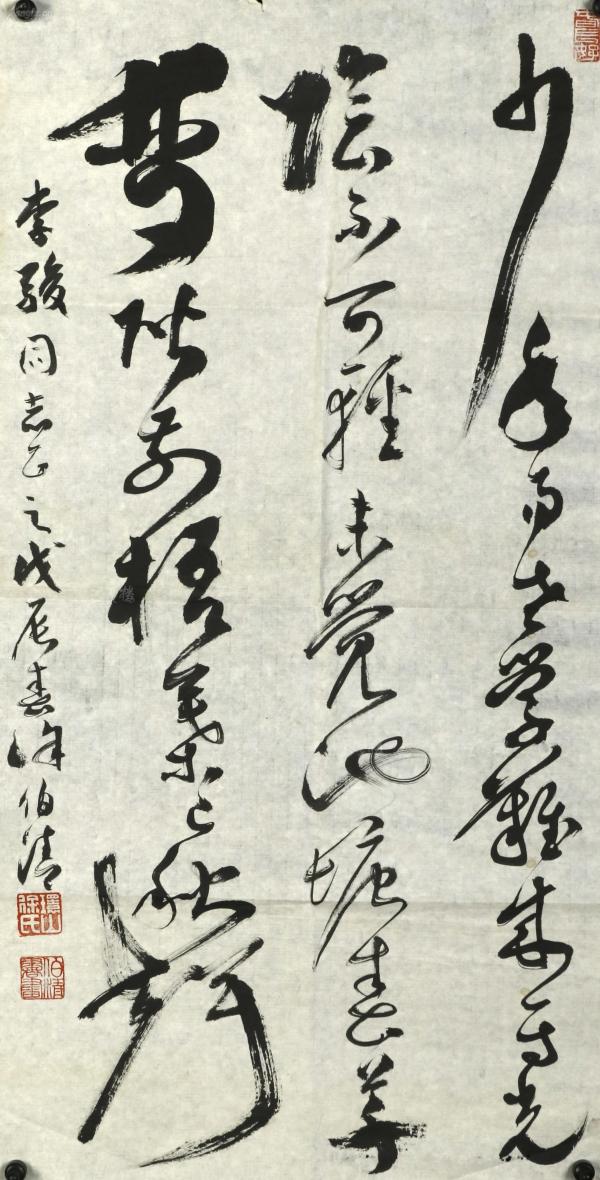 少年易老學難成一寸光
陰不可輕未覺池塘春草
夢階前梧葉已秋聲
李駿同志正之戊辰春徐伯清
環山徐氏
伯清書畫